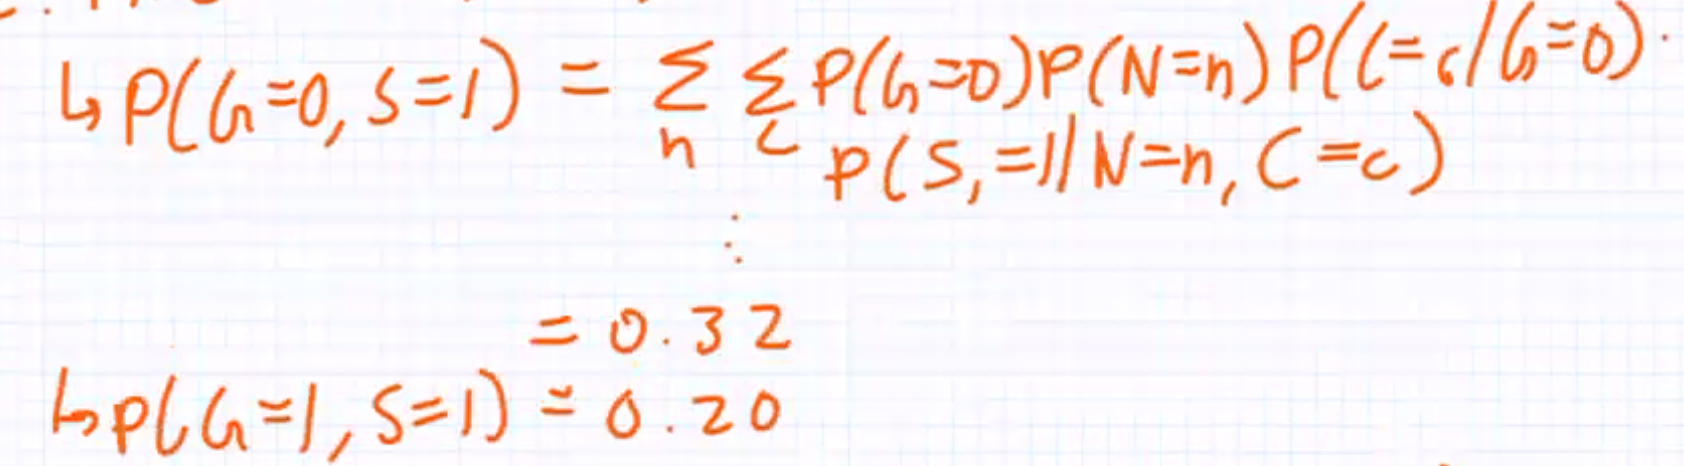 ↳ P(G=0, S=1) = Σ_n Σ_c P(G=0)P(N=n)P(C=c|G=0)·
P(S,=1|N=n, C=c)
⋮
= 0.32
↳ P(G=1, S=1) = 0.20